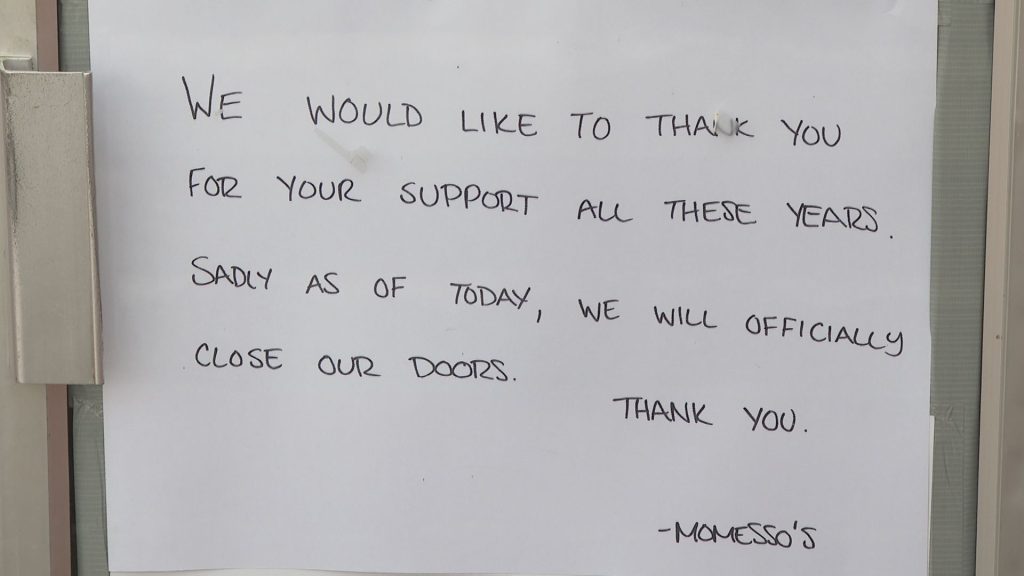 WE WOULD LIKE TO THANK YOU
FOR YOUR SUPPORT ALL THESE YEARS.
SADLY AS OF TODAY, WE WILL OFFICIALLY
CLOSE OUR DOORS.
THANK YOU.
-MOMESSO'S